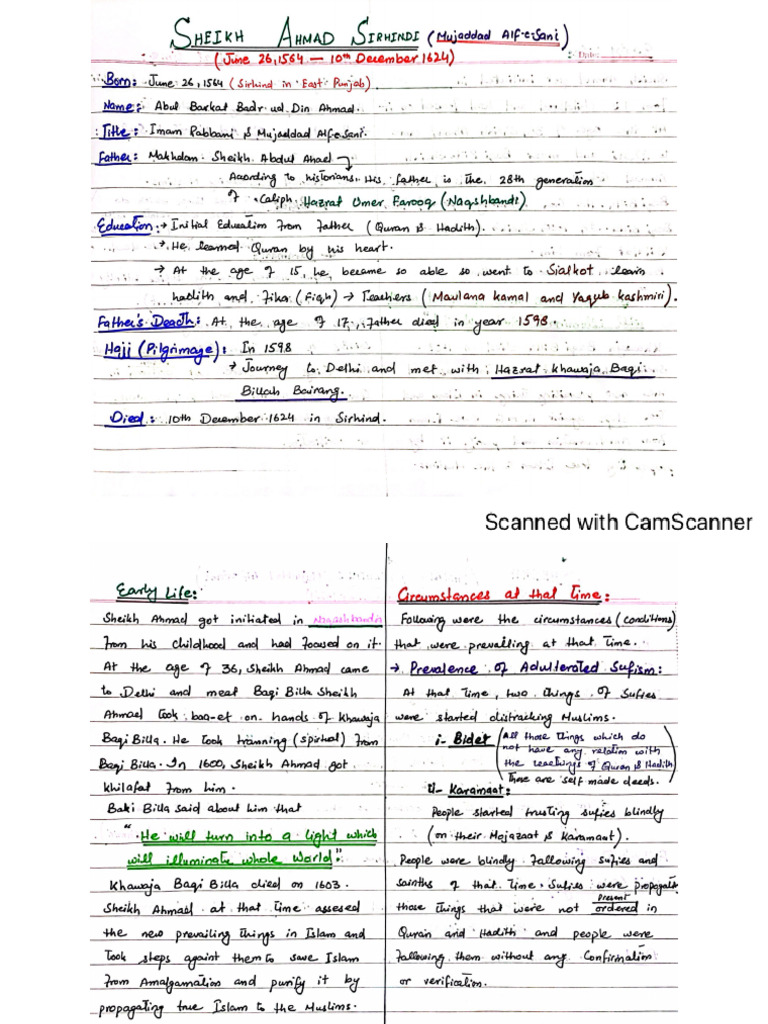 SHEIKH AHMAD SIRHINDI (Mujaddad Alf-e-Sani)
(June 26, 1564 — 10th December 1624)
Born: June 26, 1564 (Sirhind in East Punjab)
Name: Abul Barkat Badr ud Din Ahmad.
Title: Imam Rabbani & Mujaddad Alfesani.
Father: Makhdom Sheikh Abdul Ahael
According to historians, His father is the 28th generation
of Caliph Hazrat Umer Farooq (Naqshbandi)
Education: → Initial Education from father (Quran & Hadith).
→ He learned Quran by his heart.
→ At the age of 15, he became so able so went to Sialkot learn
hadith and Fika (Fiqh) → Teachers (Maulana kamal and Yaqub kashmiri).
Father's Death: At the age of 17, father died in year 1598.
Hajj (Pilgrimage): In 1598
→ Journey to Delhi and met with Hazrat khawaja Baqi
Billah Bairang.
Died: 10th December 1624 in Sirhind.
Scanned with CamScanner
Early Life:
Sheikh Ahmad got initiated in
from his childhood and had focused on it.
At the age of 36, Sheikh Ahmad came
to Delhi and meat Baqi Billa Sheikh
Ahmael took baa-et on hands of Khawaja
Baqi Billa. He took tranning (spirtual) from
Baqi Billa. In 1600, Sheikh Ahmad got
khilafat from him.
Baki Billa said about him that
"He will turn into a light which
will illuminate whole World".
Khawaja Baqi Billa died on 1603.
Sheikh Ahmad at that time assesed
the new prevailing things in Islam and
took steps againt them to save Islam
from Amalgamation and purify it by
propagating true Islam to the Muslims.
Circumstances at that Time:
Following were the circumstances (conditions)
that were prevailing at that time.
→ Prevalence of Adulterated Sufism:
At that time, two things of Sufies
were started distracking Muslims.
i- Bidet (All those things which do
not have any relation with
the teachings of Quran & Hadith
These are self made deeds.)
ii- Karamaat:
People started trusting sufies blindly
(on their Mojazaat & Karamaat).
People were blindly following sufies and
sainths of that time. Sufies were propagate
present
those things that were not ordered in
Quran and Hadith and people were
following them without any Confirmation
or verification.